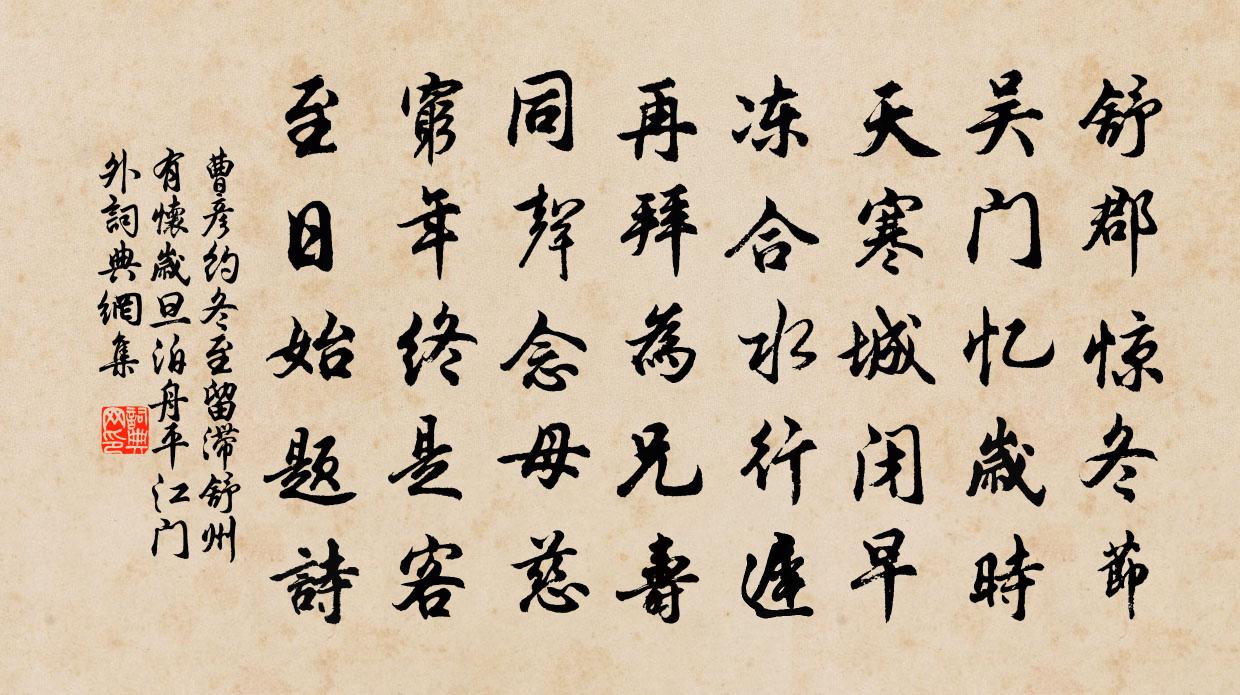 舒郡惊冬節
吴门忆歲時
天寒城闭早
冻合水行遲
再拜為兄壽
同聲念母慈
窮年终是客
至日始题詩
曹彦约冬至留滞舒州
有懷歲旦泊舟平江门
外詞典網集
詞典
网印